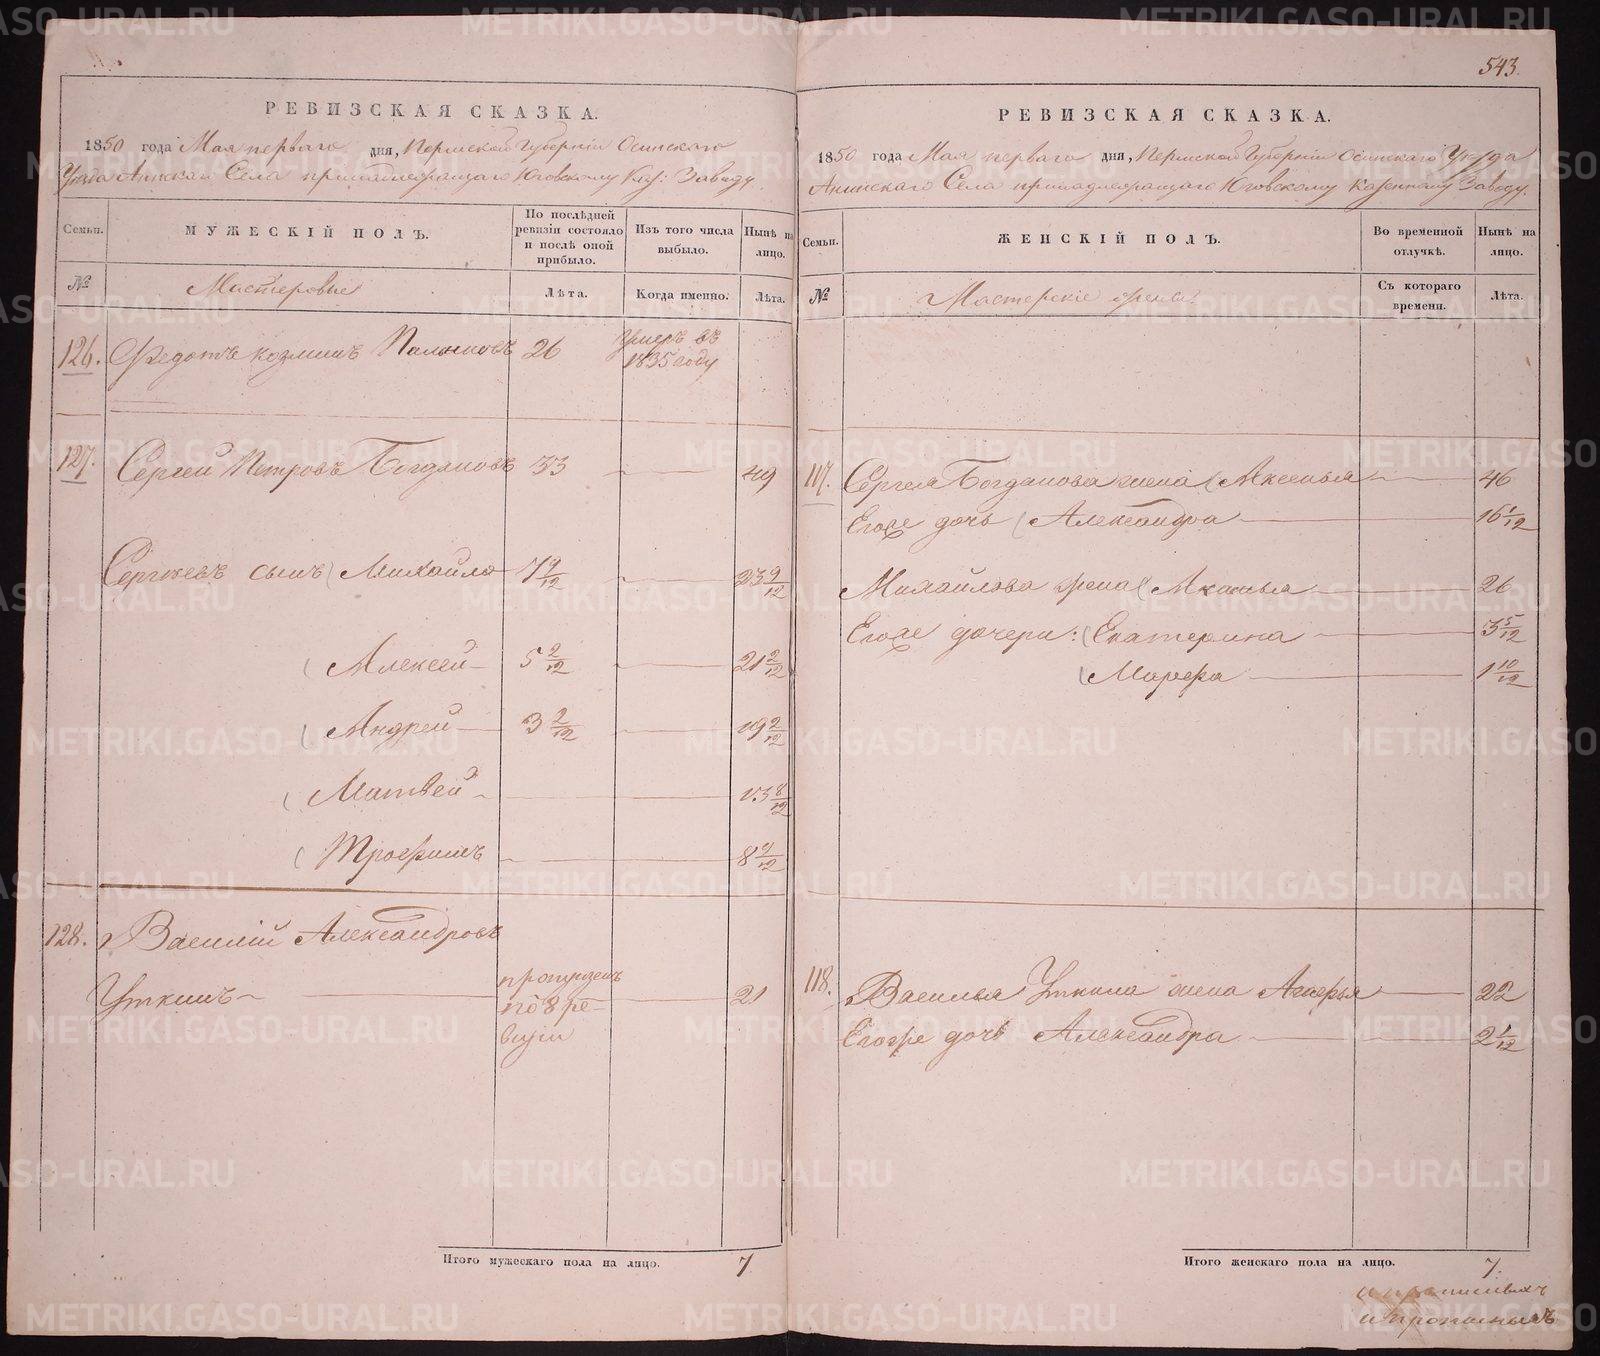 543.
РЕВИЗСКАЯ СКАЗКА.
1850 года Мая перваго дня, Пермской Губернiи Осинскаго
Уѣзда Аннскаго Села принадлежащаго Юговскому Каз: Заводу
Семьи.
МУЖЕСКIЙ ПОЛЪ.
По послѣдней ревизiи состояло и послѣ оной прибыло.
Изъ того числа выбыло.
Нынѣ на лицо.
№
Мастеровые
Лѣта.
Когда именно.
Лѣта.
126. Федотъ Козминъ 26 Умеръ въ 1835 году
127. Сергей Петровъ Богдановъ 33 49
Сергѣевъ сынъ Михайло 7 9/12 23 9/12
Алексей 5 2/12 21 2/12
Андрей 3 2/12 19 2/12
Матвей 13 8/12
Трофимъ
128. Василiй Александровъ
Уткинъ пропущенъ по 8 ревизiи 21
Итого мужескаго пола на лицо. 7
РЕВИЗСКАЯ СКАЗКА.
1850 года Мая перваго дня, Пермской Губернiи Осинскаго Уѣзда
Аннскаго Села принадлежащаго Юговскому Казенному Заводу.
Семьи.
ЖЕНСКIЙ ПОЛЪ.
Во временной отлучкѣ.
Нынѣ на лицо.
№
Мастерскiе жены
Съ котораго времени.
Лѣта.
117. Сергея Богданова жена Аксенья 46
Егоже дочь Александра 16 1/12
Михайлова жена 26
Егоже дочери: Екатерина 3 5/12
Марфа 1 10/12
118. Василья Уткина жена Агафья 22
Егоже дочь Александра 2 1/12
Итого женскаго пола на лицо. 7.
METRIKI.GASO-URAL.RU